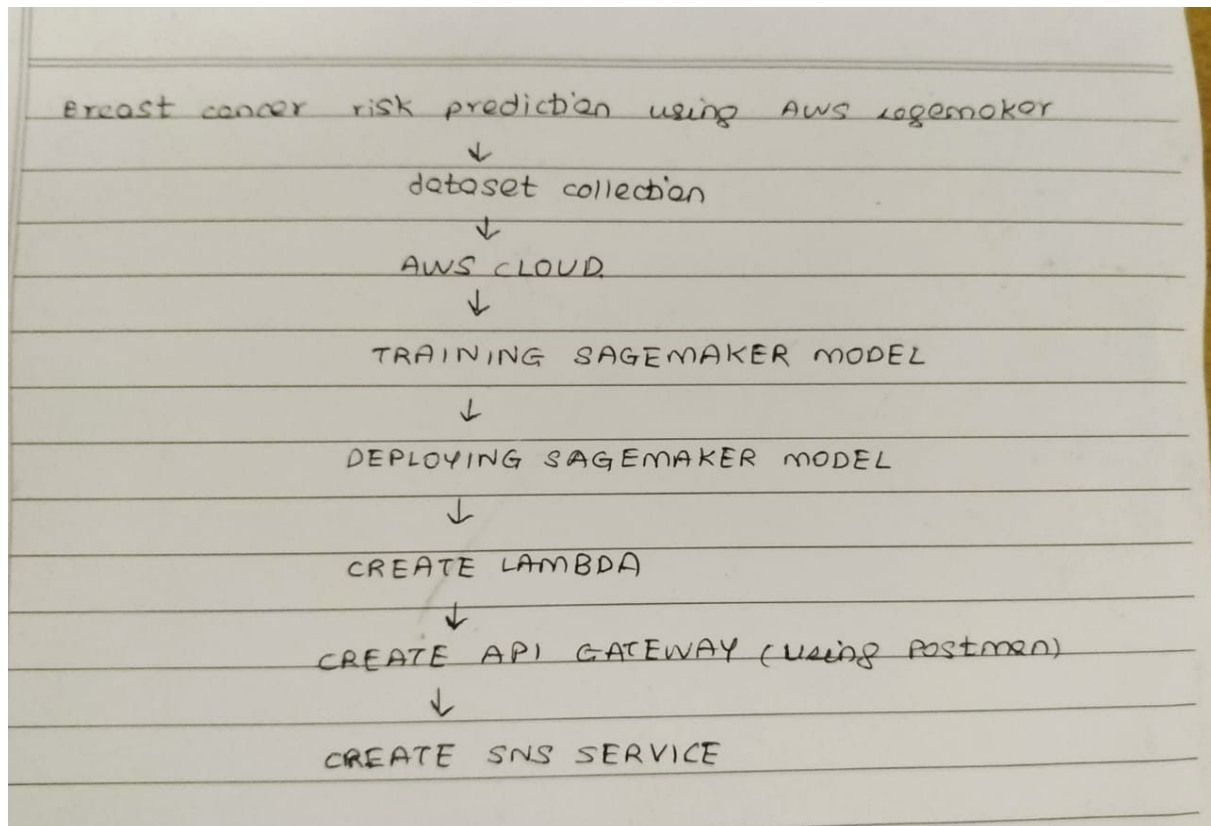 Breast cancer risk prediction using AWS sagemaker
↓
dataset collection
↓
AWS CLOUD.
↓
TRAINING SAGEMAKER MODEL
↓
DEPLOYING SAGEMAKER MODEL
↓
CREATE LAMBDA
↓
CREATE API GATEWAY (using Postman)
↓
CREATE SNS SERVICE